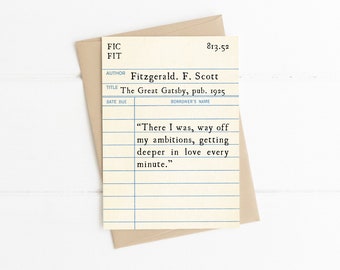 FIC 813.52
FIT
AUTHOR Fitzgerald. F. Scott
TITLE The Great Gatsby, pub. 1925
DATE DUE BORROWER'S NAME
“There I was, way off
my ambitions, getting
deeper in love every
minute.”